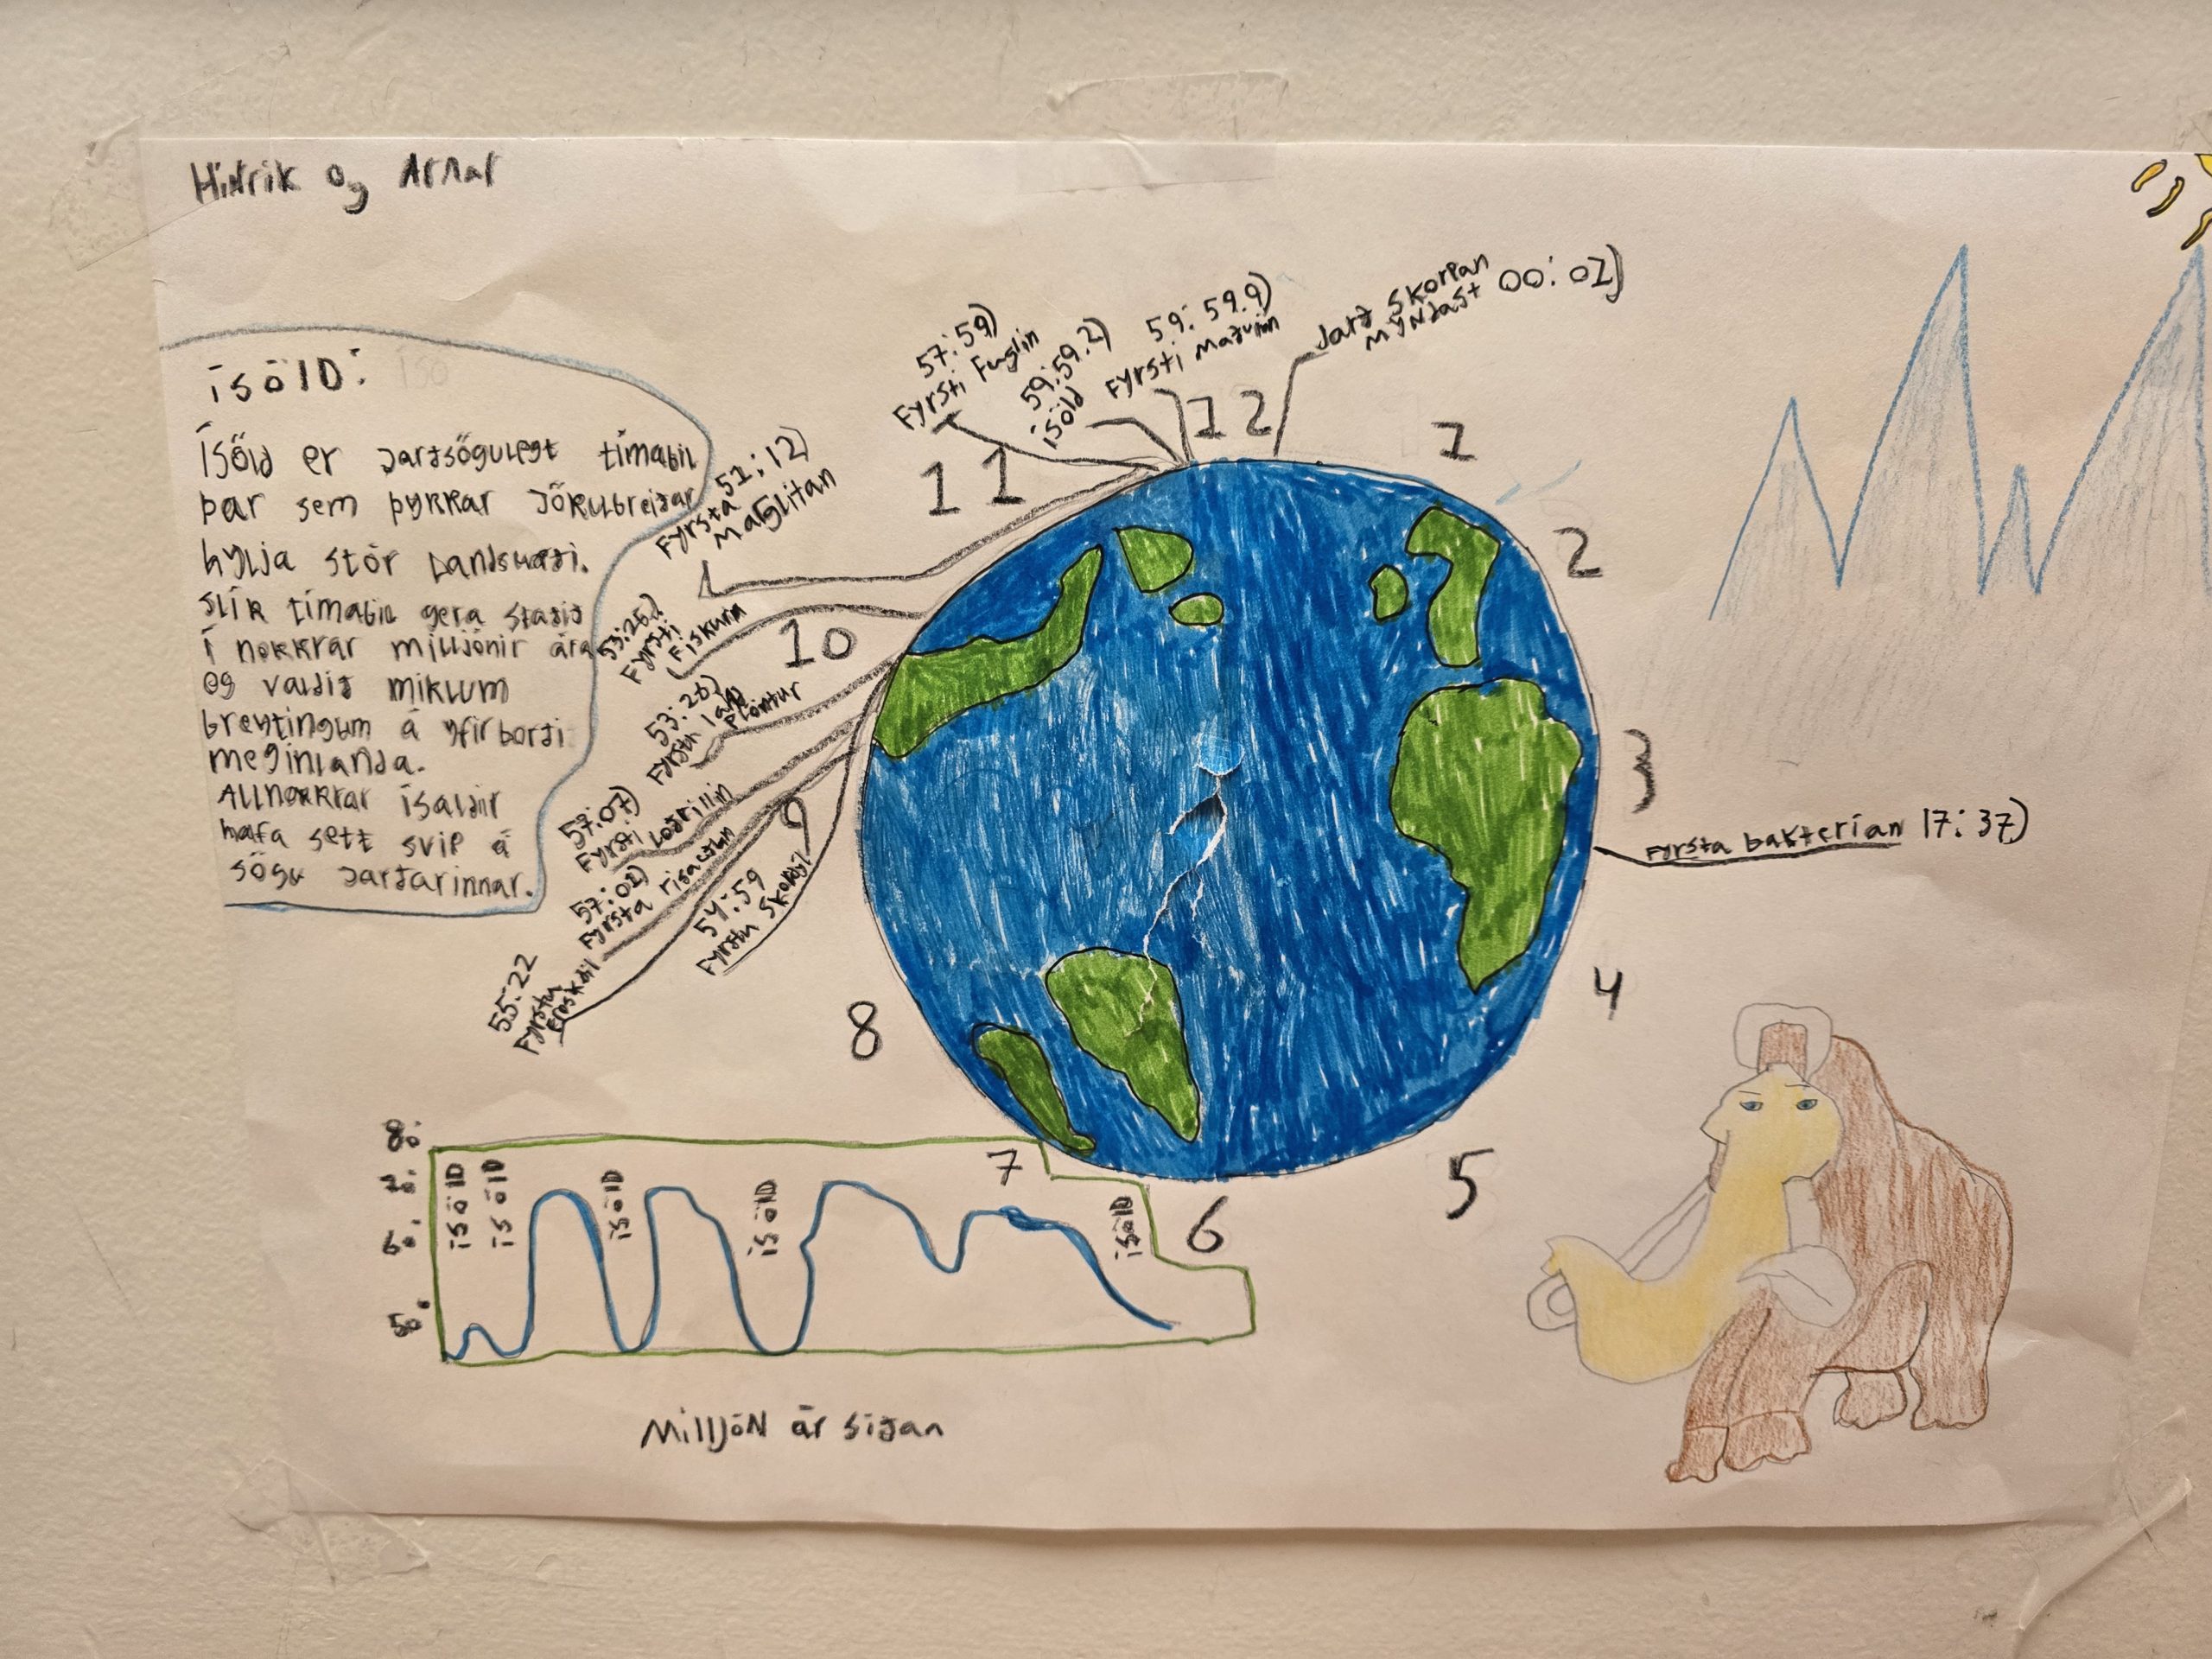 Hinrik og Arnar
ísöld:
Ísöld er Jarðsögulegt tímabil
þar sem þykkar Jökulbreiðar
hylja stór landsvæði.
slík tímabil gera staðið
í nokkrar milljónir ára
og valdið miklum
breytingum á yfirborði
meginlanda.
Allnokkrar ísaldir
hafa sett svip á
sögu Jarðarinnar.
57:59)
Fyrsti Fuglin
59:59.2)
ísöld
59:59.9)
Fyrsti maðurinn
Jarð skorpan
myndast 00:02)
51:12)
Fyrsta
Marglitan
53:26)
Fyrsti
Fiskurin
53:26)
Fyrstu land
Plöntur
57:07)
Fyrsti Loðfíllin
57:02)
Fyrsta risaeðlan
54:59
Fyrstu Skordýr
55:22
Fyrstu
Froskdýr
Fyrsta bakterían 17:37)
12
1
2
3
4
5
6
7
8
9
10
11
80°
70°
60°
50°
ísöld
ísöld
ísöld
ísöld
ísöld
Milljón ár síðan